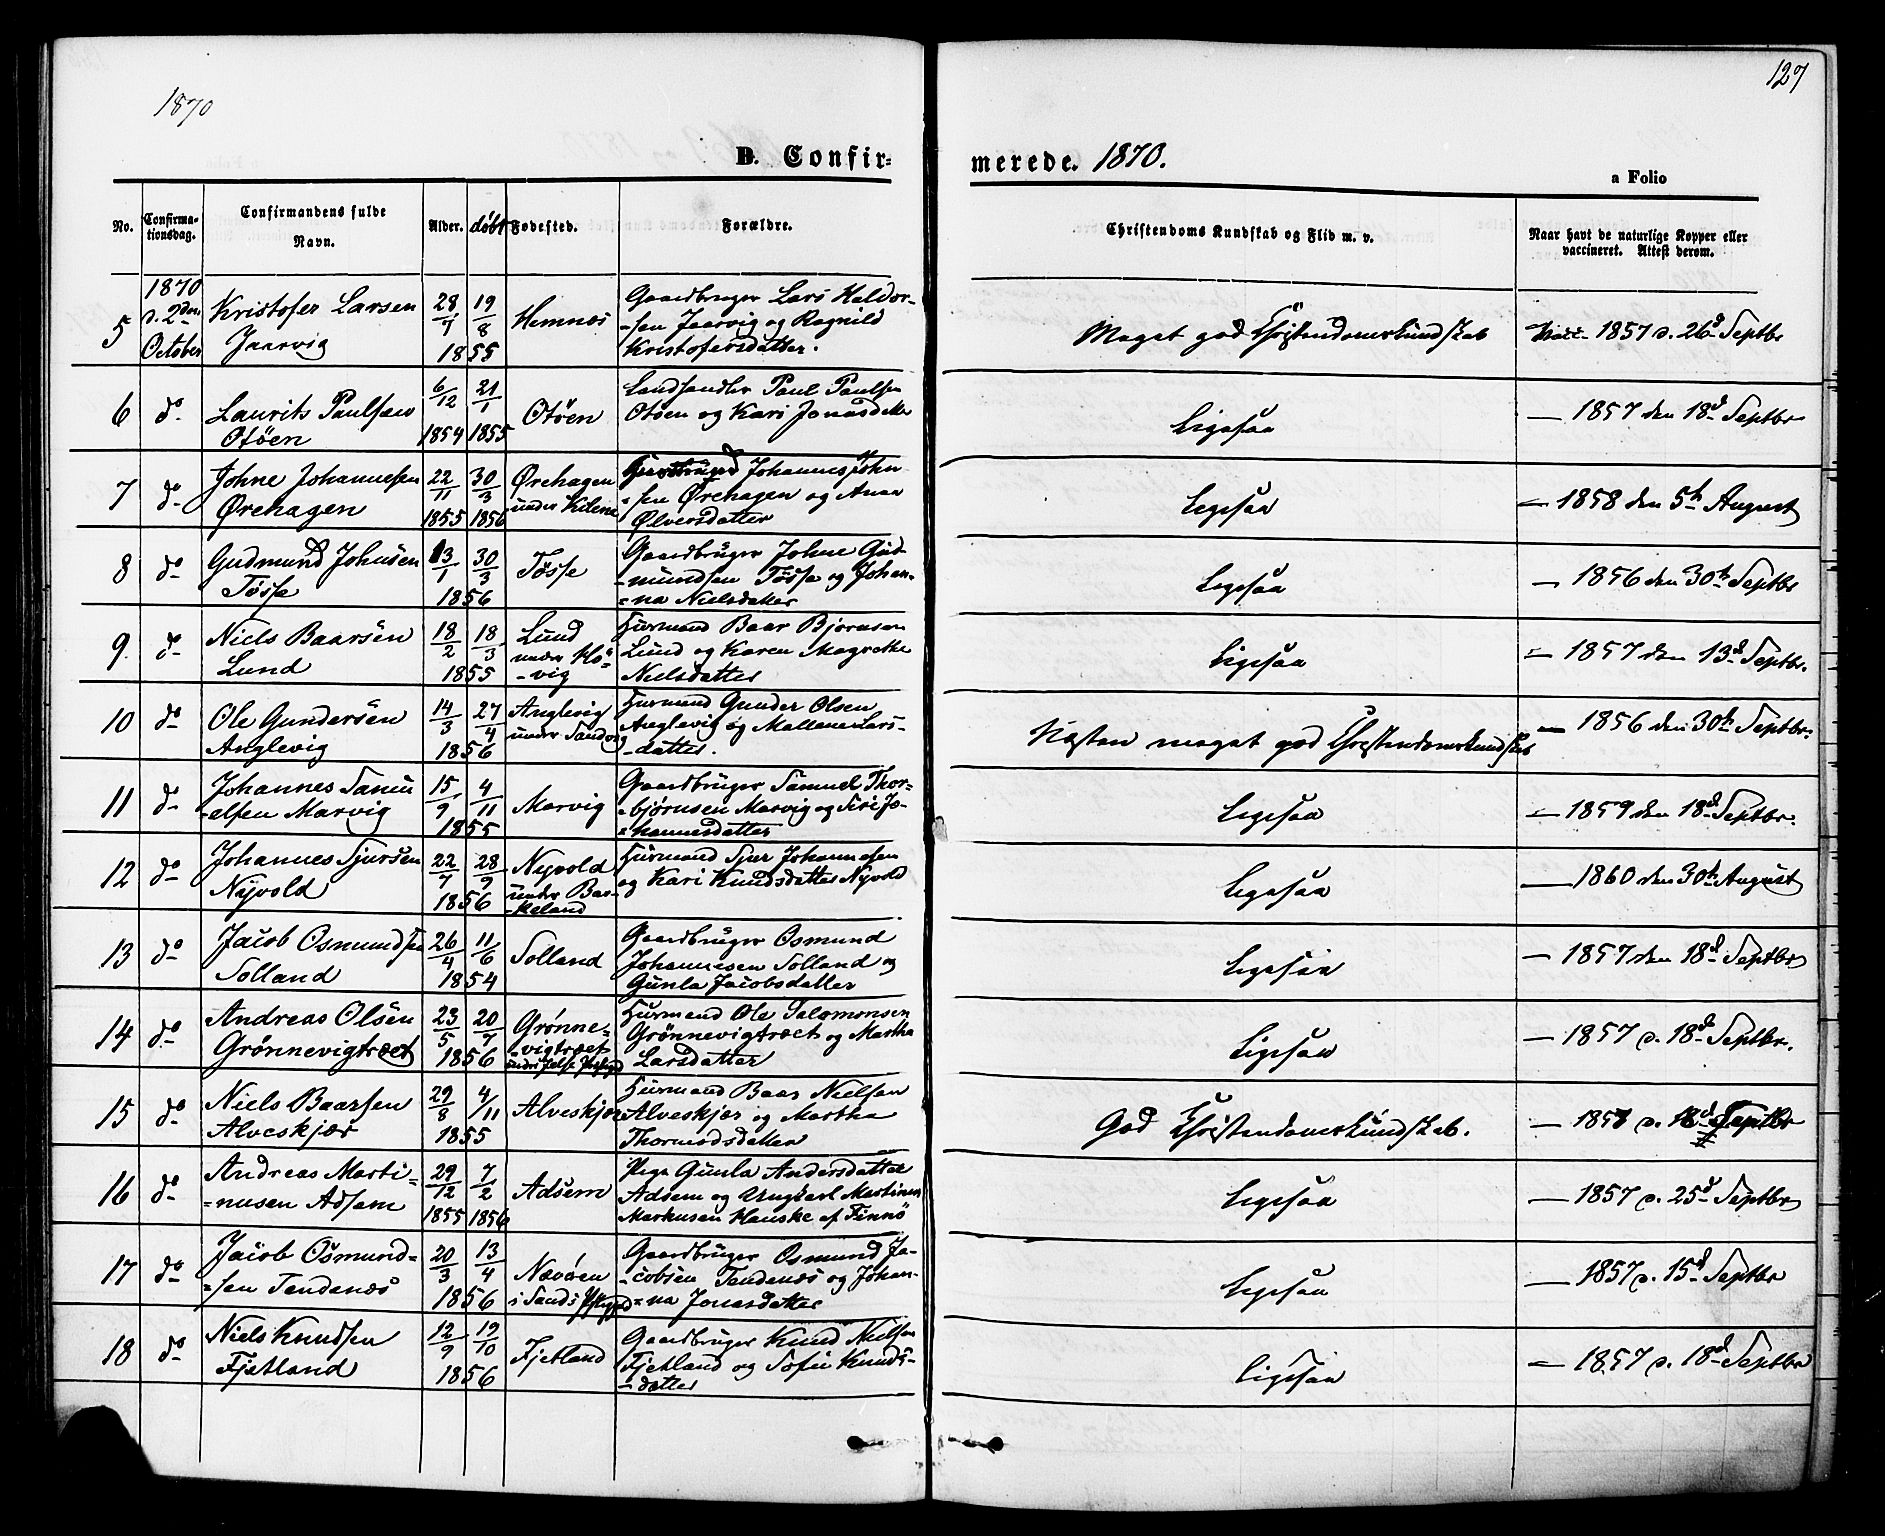 1870
127
B. Confir-
merede. 1870.
a Folio
No.
Confirma-
tionsdag.
Confirmandens fulde
Navn.
Alder.
döbt
Fødested.
Forældre.
Christendoms Kundskab og Flid m. v.
Naar havt de naturlige Kopper eller
vaccineret. Attest derom.
5
1870
d. 2den
October
Kristofer Larsen
Jaarvig
28/7 19/8
1855
Hemnæs
Gaardbruger Lars Haldor-
-sen Jaarvig og Ragnild
Kristofersdatter.
Meget god Christendomskundskab
1857 d. 26d Septbr
6 do
Laurits Paulsen
Otöen
6/12 21/1
1854 1855
Otöen
Landhandler Paul Paulsen
Otöen og Kari Jonasdatter
Ligesaa
— 1857 den 18d Septbr
7 do
Johne Johannesen
Ørehagen
22/11 30/3
1855 1856
Ørehagen
under
Johannes John
-sen Ørehagen og Anna
Ølversdatter
Ligesaa
— 1858 den 5h August
8 do
Gudmund Johnsen
Tösse
13/1 30/3
1856
Tösse
Gaardbruger Johne Gud-
-mundsen Tösse og Johan-
-na Nielsdatter
Ligesaa
— 1856 den 30h Septbr
9 do
Niels Baarsen
Lund
18/2 18/3
1855
Lund
under Hö-
-vig
Huusmand Baar Bjørnsen
Lund og Karen Magrethe
Nielsdatter
Ligesaa
— 1857 den 13d Septbr.
10 do
Ole Gundersen
Anglevig
14/3 27/4
1856
Anglevig
under
Huusmand Gunder Olsen
Anglevig og Mallene Lars-
-datter.
Næsten meget god Christendomskundskab
— 1856 den 30h Septbr.
11 do
Johannes Samu
-elsen Marvig
15/9 4/11
1855
Marvig
Gaardbruger Samuel Thor-
-bjørnsen Marvig og Siri Jo-
-hannesdatter
Ligesaa
— 1859 den 18d Septbr.
12 do
Johannes Sjursen
Nyvold
22/7 28/9
1856
Nyvold
under Bar-
-keland
Huusmand Sjur Johannesen
og Kari Knudsdatter Nyvold
Ligesaa
— 1860 den 30h August
13 do
Jacob Osmundsen
Solland
26/4 11/6
1854
Solland
Gaardbruger Osmund
Johannesen Solland og
Gunla Jacobsdatter
Ligesaa
— 1857 den 18d Septbr
14 do
Andreas Olsen
Grönnevigtræet
23/5 20/7
1856
Grönne-
-vigtræet
under Jelse Præstegd
Huusmand Ole Salomonsen
Grönnevigtræet og Martha
Larsdatter
Ligesaa
— 1857 d. 18d Septbr.
15 do
Niels Baarsen
Alveskjær
29/8 4/11
1855
Alveskjær
Huusmand Baar Nielsen
Alveskjær og Martha
Thormodsdatter
God Christendomskundskab.
— 1857 d. 18d Septbr
16 do
Andreas Marti-
-nusen Adsem
29/12 7/2
1855 1856
Adsem
Pige Gunla Andersdatter
Adsem og Ungkarl Martinus
Markusen Hauske af Finnö
Ligesaa
— 1857 d. 25d Septbr
17 do
Jacob Osmund-
-sen Tendenæs
20/3 13/4
1856
Nævöen
i Sands Præstegd
Gaardbruger Osmund Ja-
-cobsen Tendenæs og Johan-
-na Jonasdatter
Ligesaa
— 1857 d. 15d Septbr
18 do
Niels Knudsen
Fjetland
12/9 19/10
1856
Fjetland
Gaardbruger Knud Nielsen
Fjetland og Sofie Knuds-
-datter
Ligesaa
— 1857 d. 18d Septbr